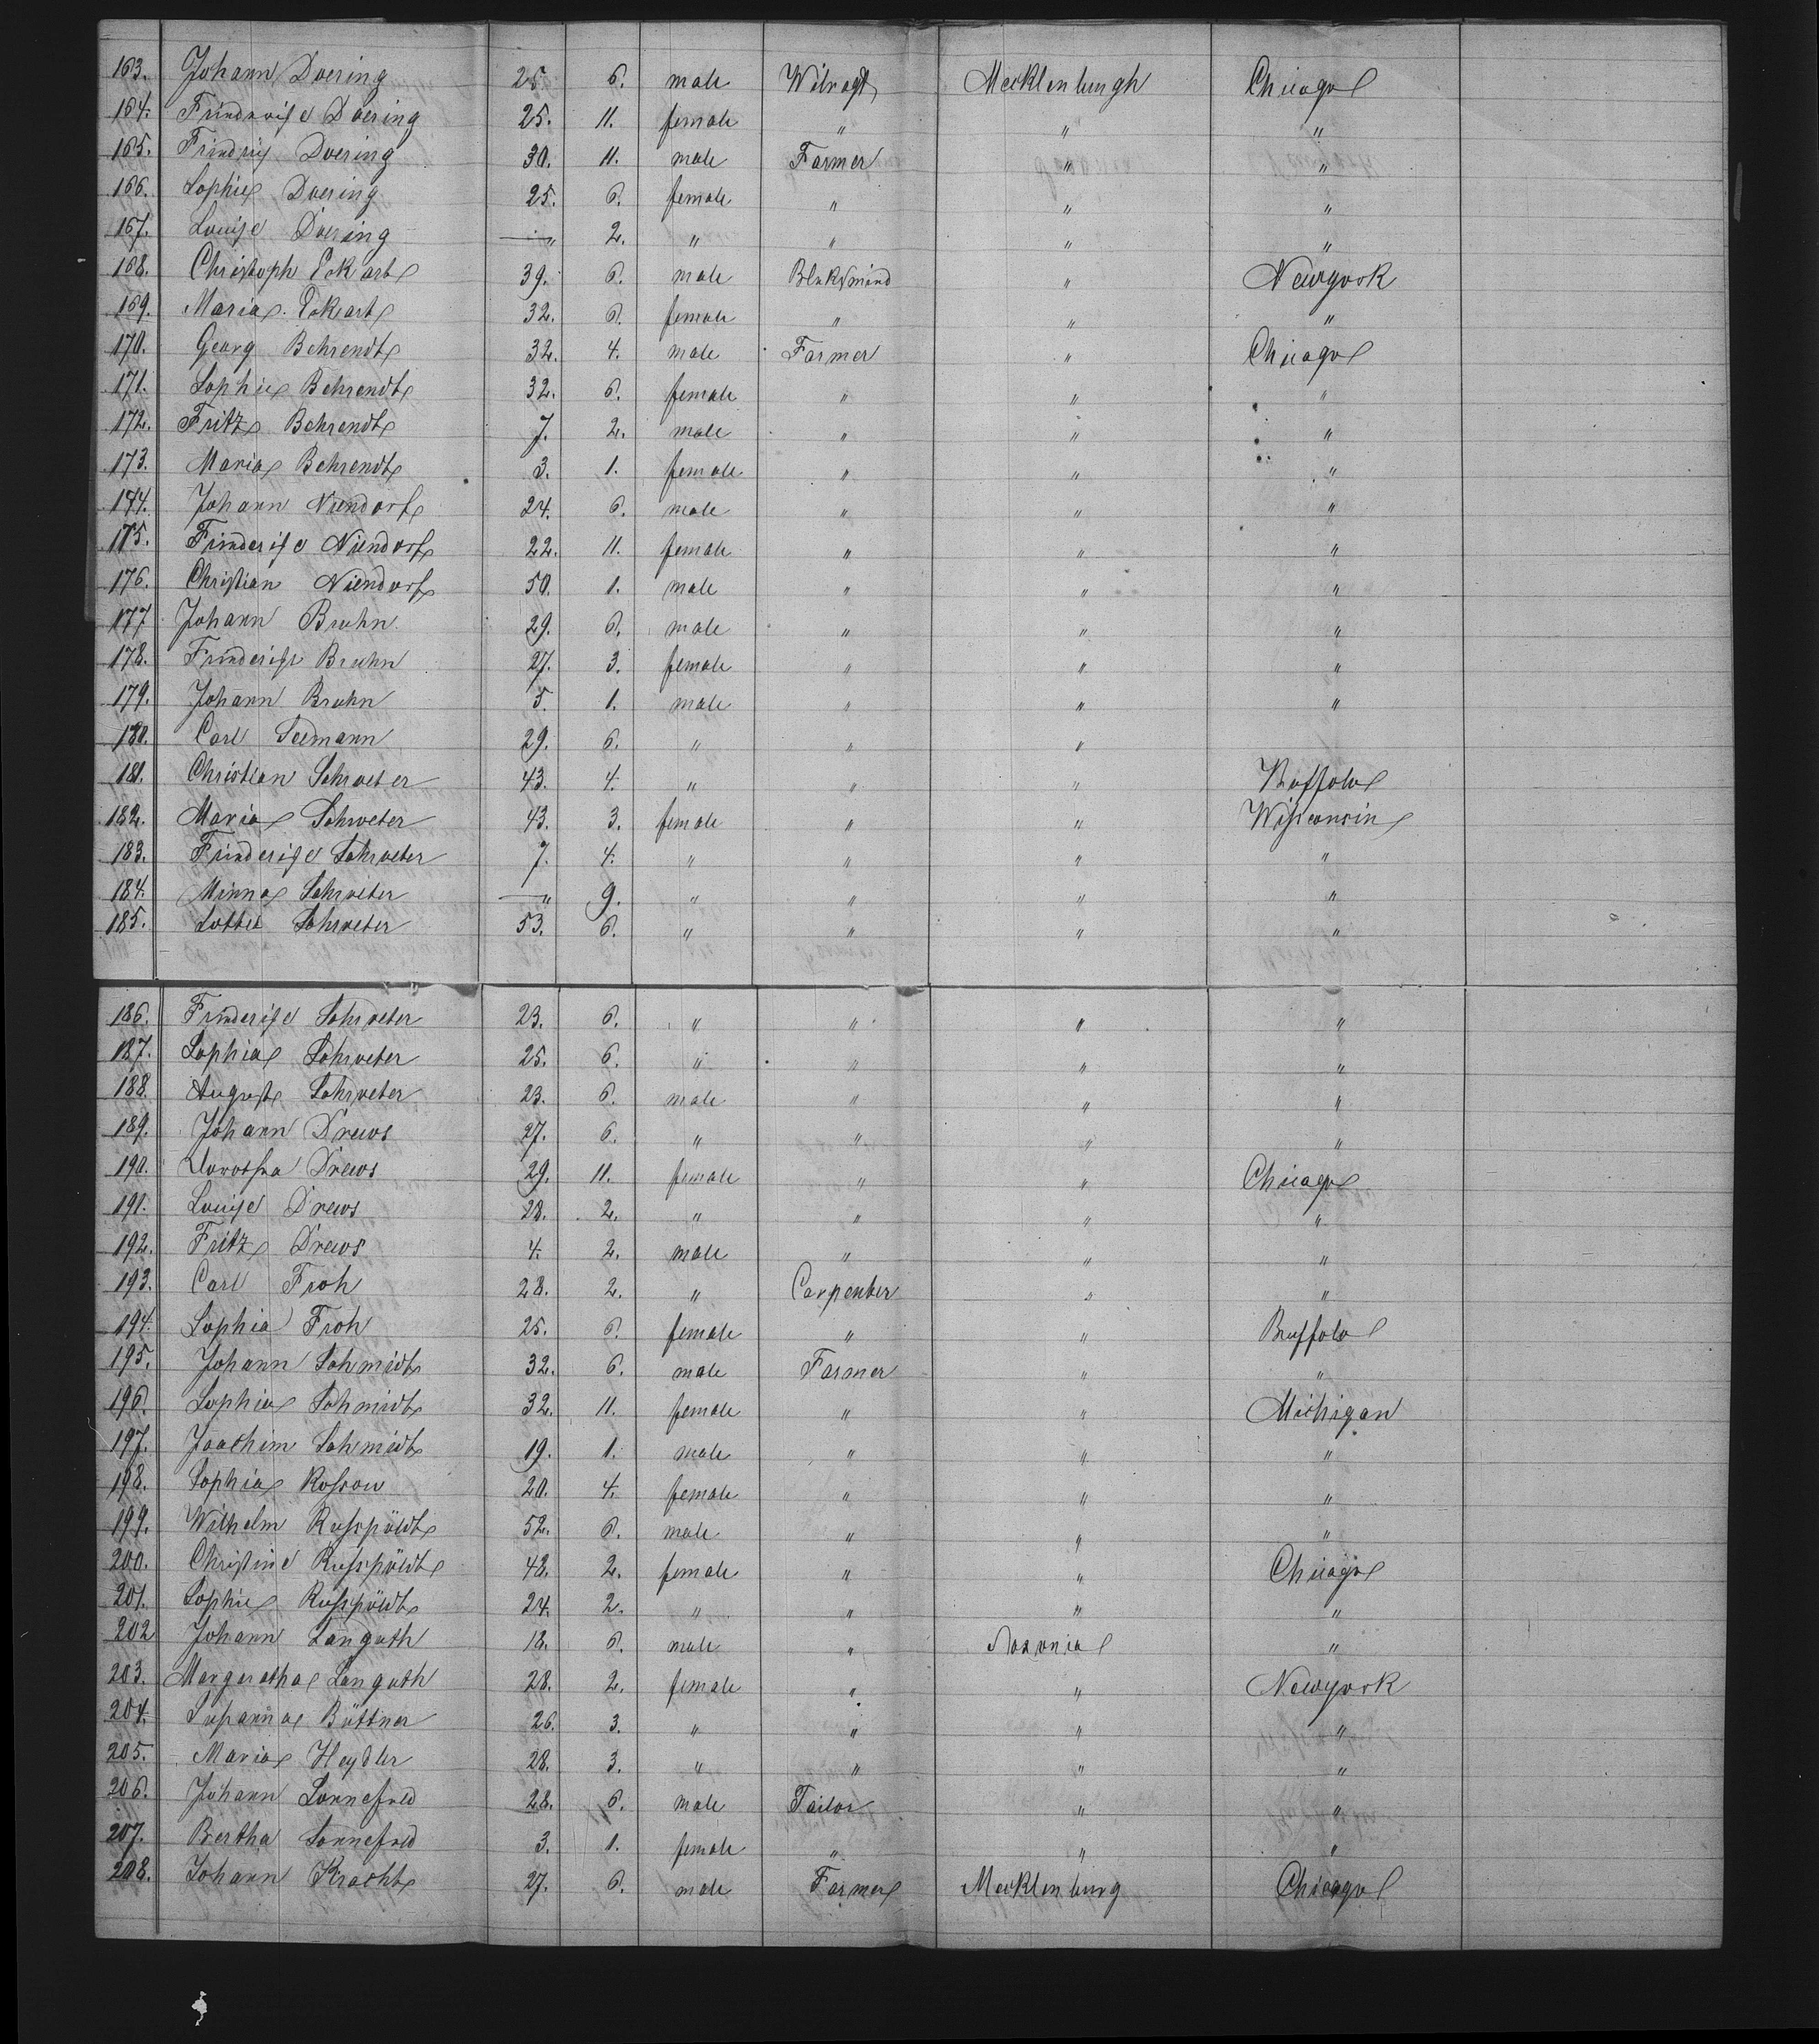 163. Johann Doering 25. 6. male Mecklenburgh Chicago
164. Doering 25. 11. female " " "
165. Doering 30. 11. male Farmer " "
166. Sophie Doering 25. 6. female " " "
167. Louise Doering —" 2. " " " "
168. Christoph Eckart 39. 6. male " Newyork
169. Maria Eckart 32. 6. female " " "
170. Georg Behrendt 32. 4. male Farmer " Chicago
171. Sophie Behrendt 32. 6. female " " "
172. Fritz Behrendt 7. 2. male " " "
173. Maria Behrendt 3. 1. female " " "
174. Johann Niendorf 24. 6. male " " "
175. Niendorf 22. 11. female " " "
176. Christian Niendorf 50. 1. male " " "
177 Johann Bruhn 29. 6. male " " "
178. Bruhn 27. 3. female " " "
179. Johann Bruhn 5. 1. male " " "
180. Carl Seemann 29. 6. " " "
181. Christian Schroeter 43. 4. " " " Buffalo
182. Maria Schroeter 43. 3. female " " Wisconsin
183. Schroeter 7. 4. " " " "
184. Minna Schroeter —" 9. " " " "
185. Lottie Schroeter 53. 6. " " " "
186. Schroeter 23. 6. " " " "
187. Sophia Schroeter 25. 6. " " " "
188. August Schroeter 23. 6. male " " "
189. Johann Drews 27. 6. " " " "
190. Drews 29. 11. female " " Chicago
191. Louise Drews 28. 2. " " " "
192. Fritz Drews 4. 2. male " " "
193. Carl Froh 28. 2. " Carpenter " "
194. Sophia Froh 25. 6. female " " Buffalo
195. Johann Schmidt 32. 6. male Farmer " "
196. Sophia Schmidt 32. 11. female " " Michigan
197. Joachim Schmidt 19. 1. male " " "
198. Sophia Rossow 20. 4. female " " "
199. Wilhelm 52. 6. male " " "
200. Christine 48. 2. female " " Chicago
201. Sophie 24. 2. " " " "
202 Johann Languth 18. 6. male " Saxonia "
203. Margaretha Languth 28. 2. female " " Newyork
204. Susanna Büttner 26. 3. " " " "
205. Maria Heydler 28. 3. " " " "
206. Johann 28. 6. male Tailor " "
207. Bertha 3. 1. female " " "
208. Johann Kracht 27. 6. male Farmer Mecklenburg Chicago